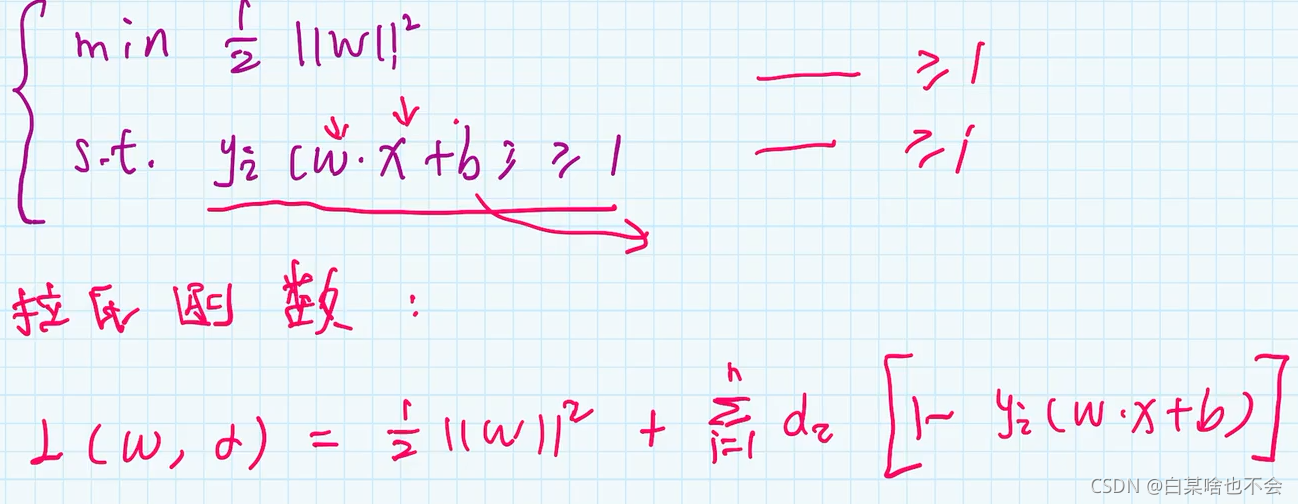 min 1/2 ||w||²
—— ≥1
s.t. yᵢ (w·x+b) ≥ 1
— ≥1
拉氏函数:
L(w, α) = 1/2 ||w||² + Σⁿᵢ₌₁ αᵢ [1- yᵢ(w·x+b)]
CSDN @白某啥也不会